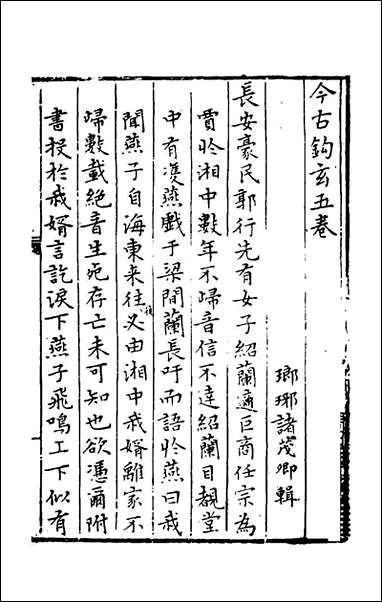 今古鈎玄五卷
瑯琊諸茂卿輯
長安豪民郭行先有女子紹蘭適巨商任宗為
賈於湘中數年不歸音信不達紹蘭目覩堂
中有雙燕戲于梁間蘭長吁而語於燕曰我
聞燕子自海東来徃復必由湘中我婿離家不
歸數載絶音生死存亡未可知也欲憑爾附
書投於我婿言訖淚下燕子飛鳴上下似有